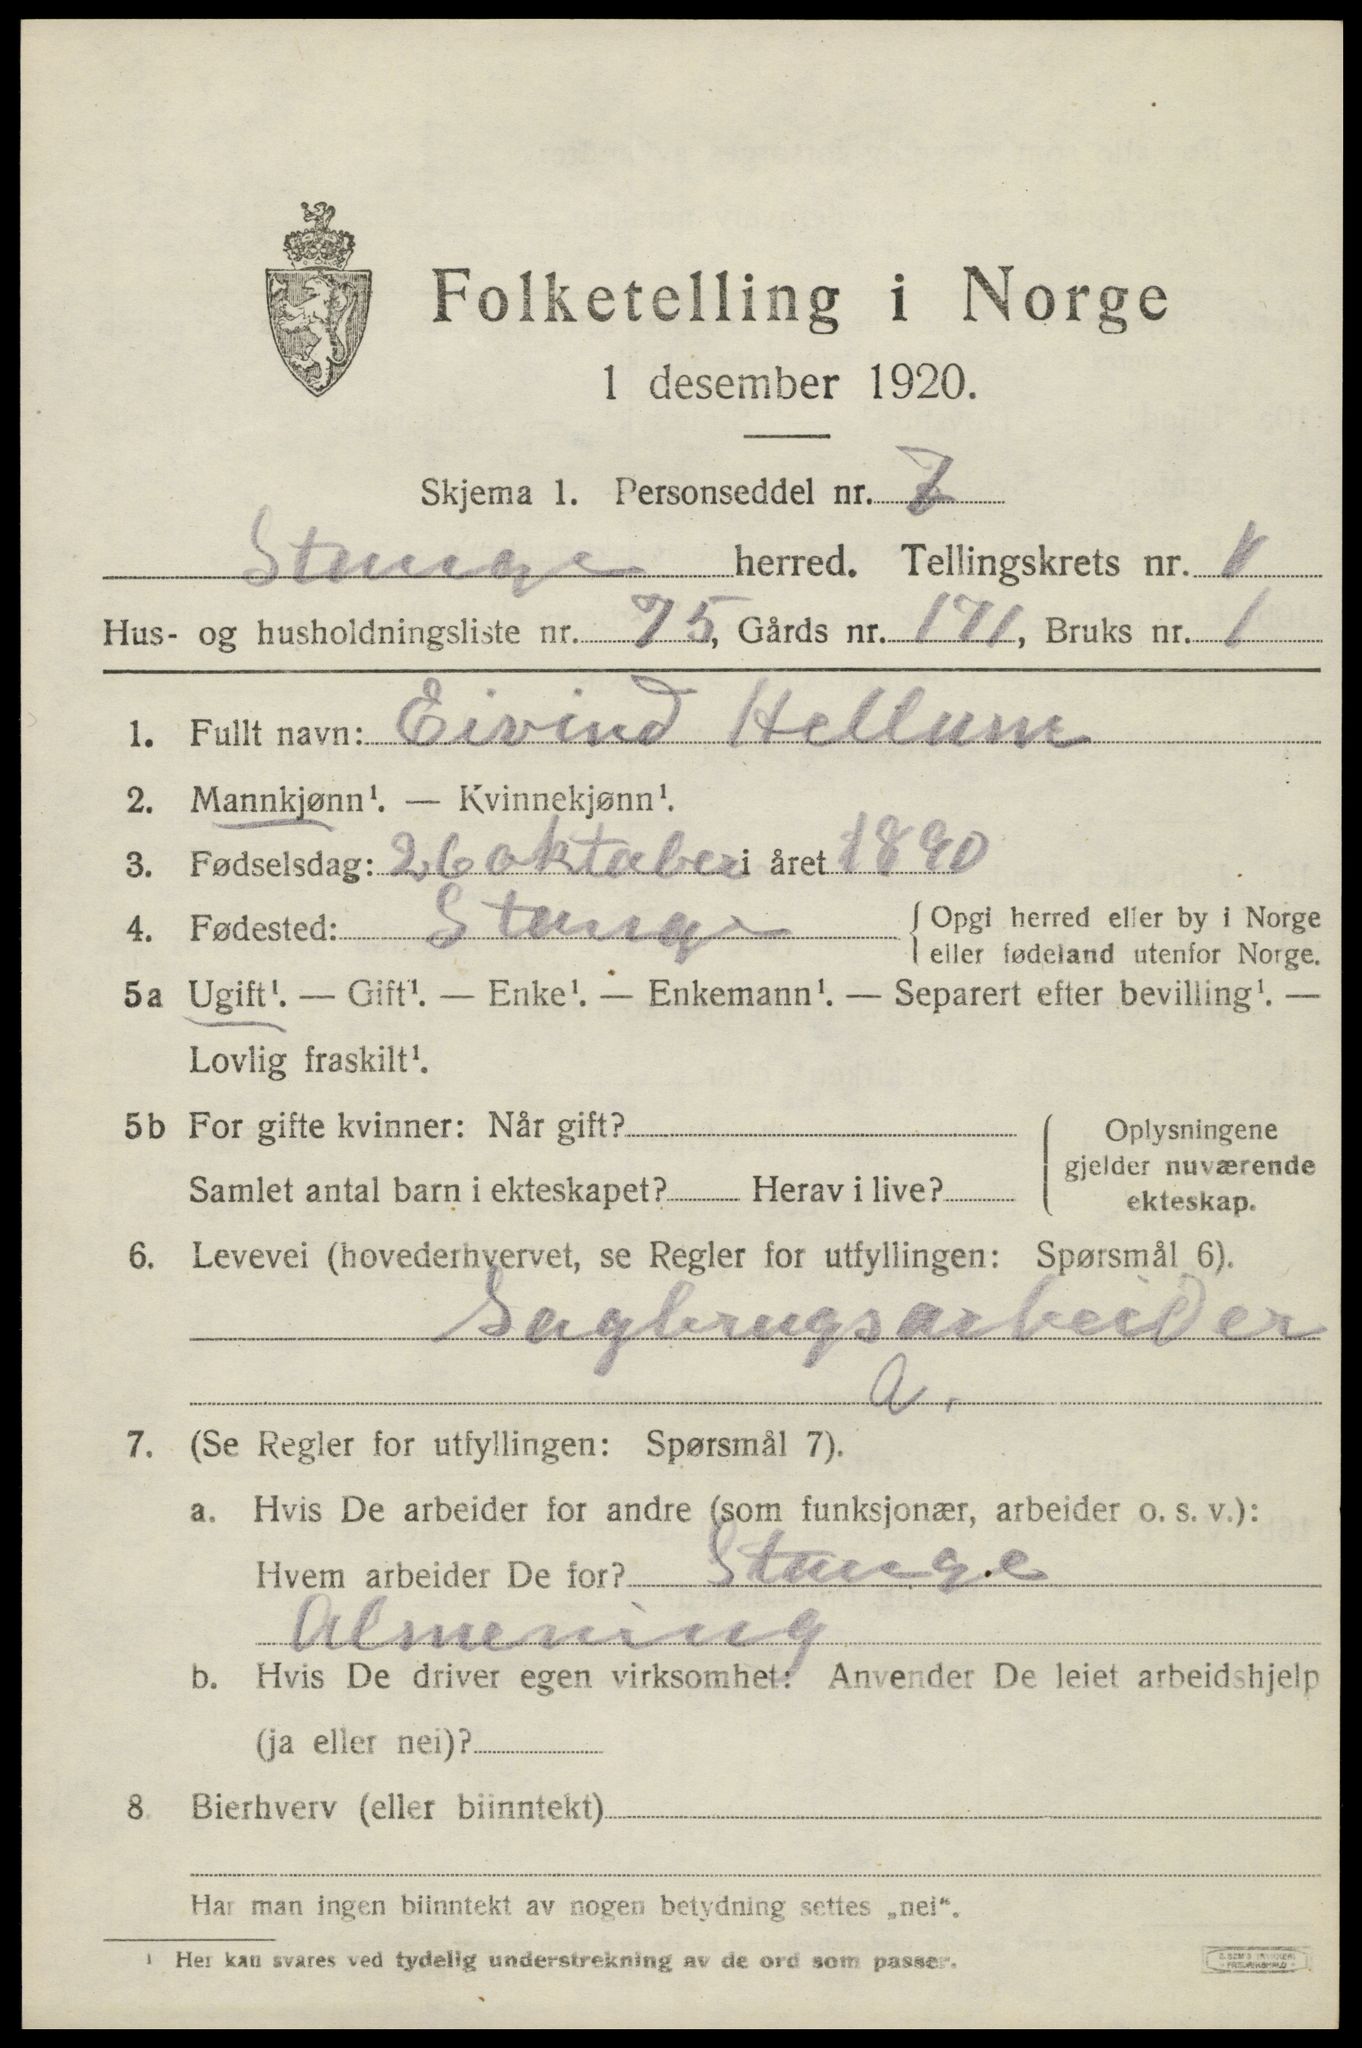 Folketelling i Norge
1 desember 1920.
Skjema 1. Personseddel nr. 7
Stange herred. Tellingskrets nr. V
Hus- og husholdningsliste nr. 75, Gårds nr. 171, Bruks nr. 1
1. Fullt navn: Eivind Hellum
2. Mannkjønn¹. — Kvinnekjønn¹.
3. Fødselsdag: 26 oktober i året 1890
4. Fødested: Stange { Opgi herred eller by i Norge
eller fødeland utenfor Norge.
5a Ugift¹. — Gift¹. — Enke¹. — Enkemann¹. — Separert efter bevilling¹. —
Lovlig fraskilt¹.
5b For gifte kvinner: Når gift?
Samlet antal barn i ekteskapet? Herav i live?
{ Oplysningene
gjelder nuværende
ekteskap.
6. Levevei (hovederhvervet, se Regler for utfyllingen: Spørsmål 6).
Sagbrugsarbeider
a.
7. (Se Regler for utfyllingen: Spørsmål 7).
a. Hvis De arbeider for andre (som funksjonær, arbeider o. s. v.):
Hvem arbeider De for? Stange
Almening
b. Hvis De driver egen virksomhet: Anvender De leiet arbeidshjelp
(ja eller nei)?
8. Bierhverv (eller biinntekt)
Har man ingen biinntekt av nogen betydning settes „nei“.
¹ Her kan svares ved tydelig understrekning av de ord som passer.